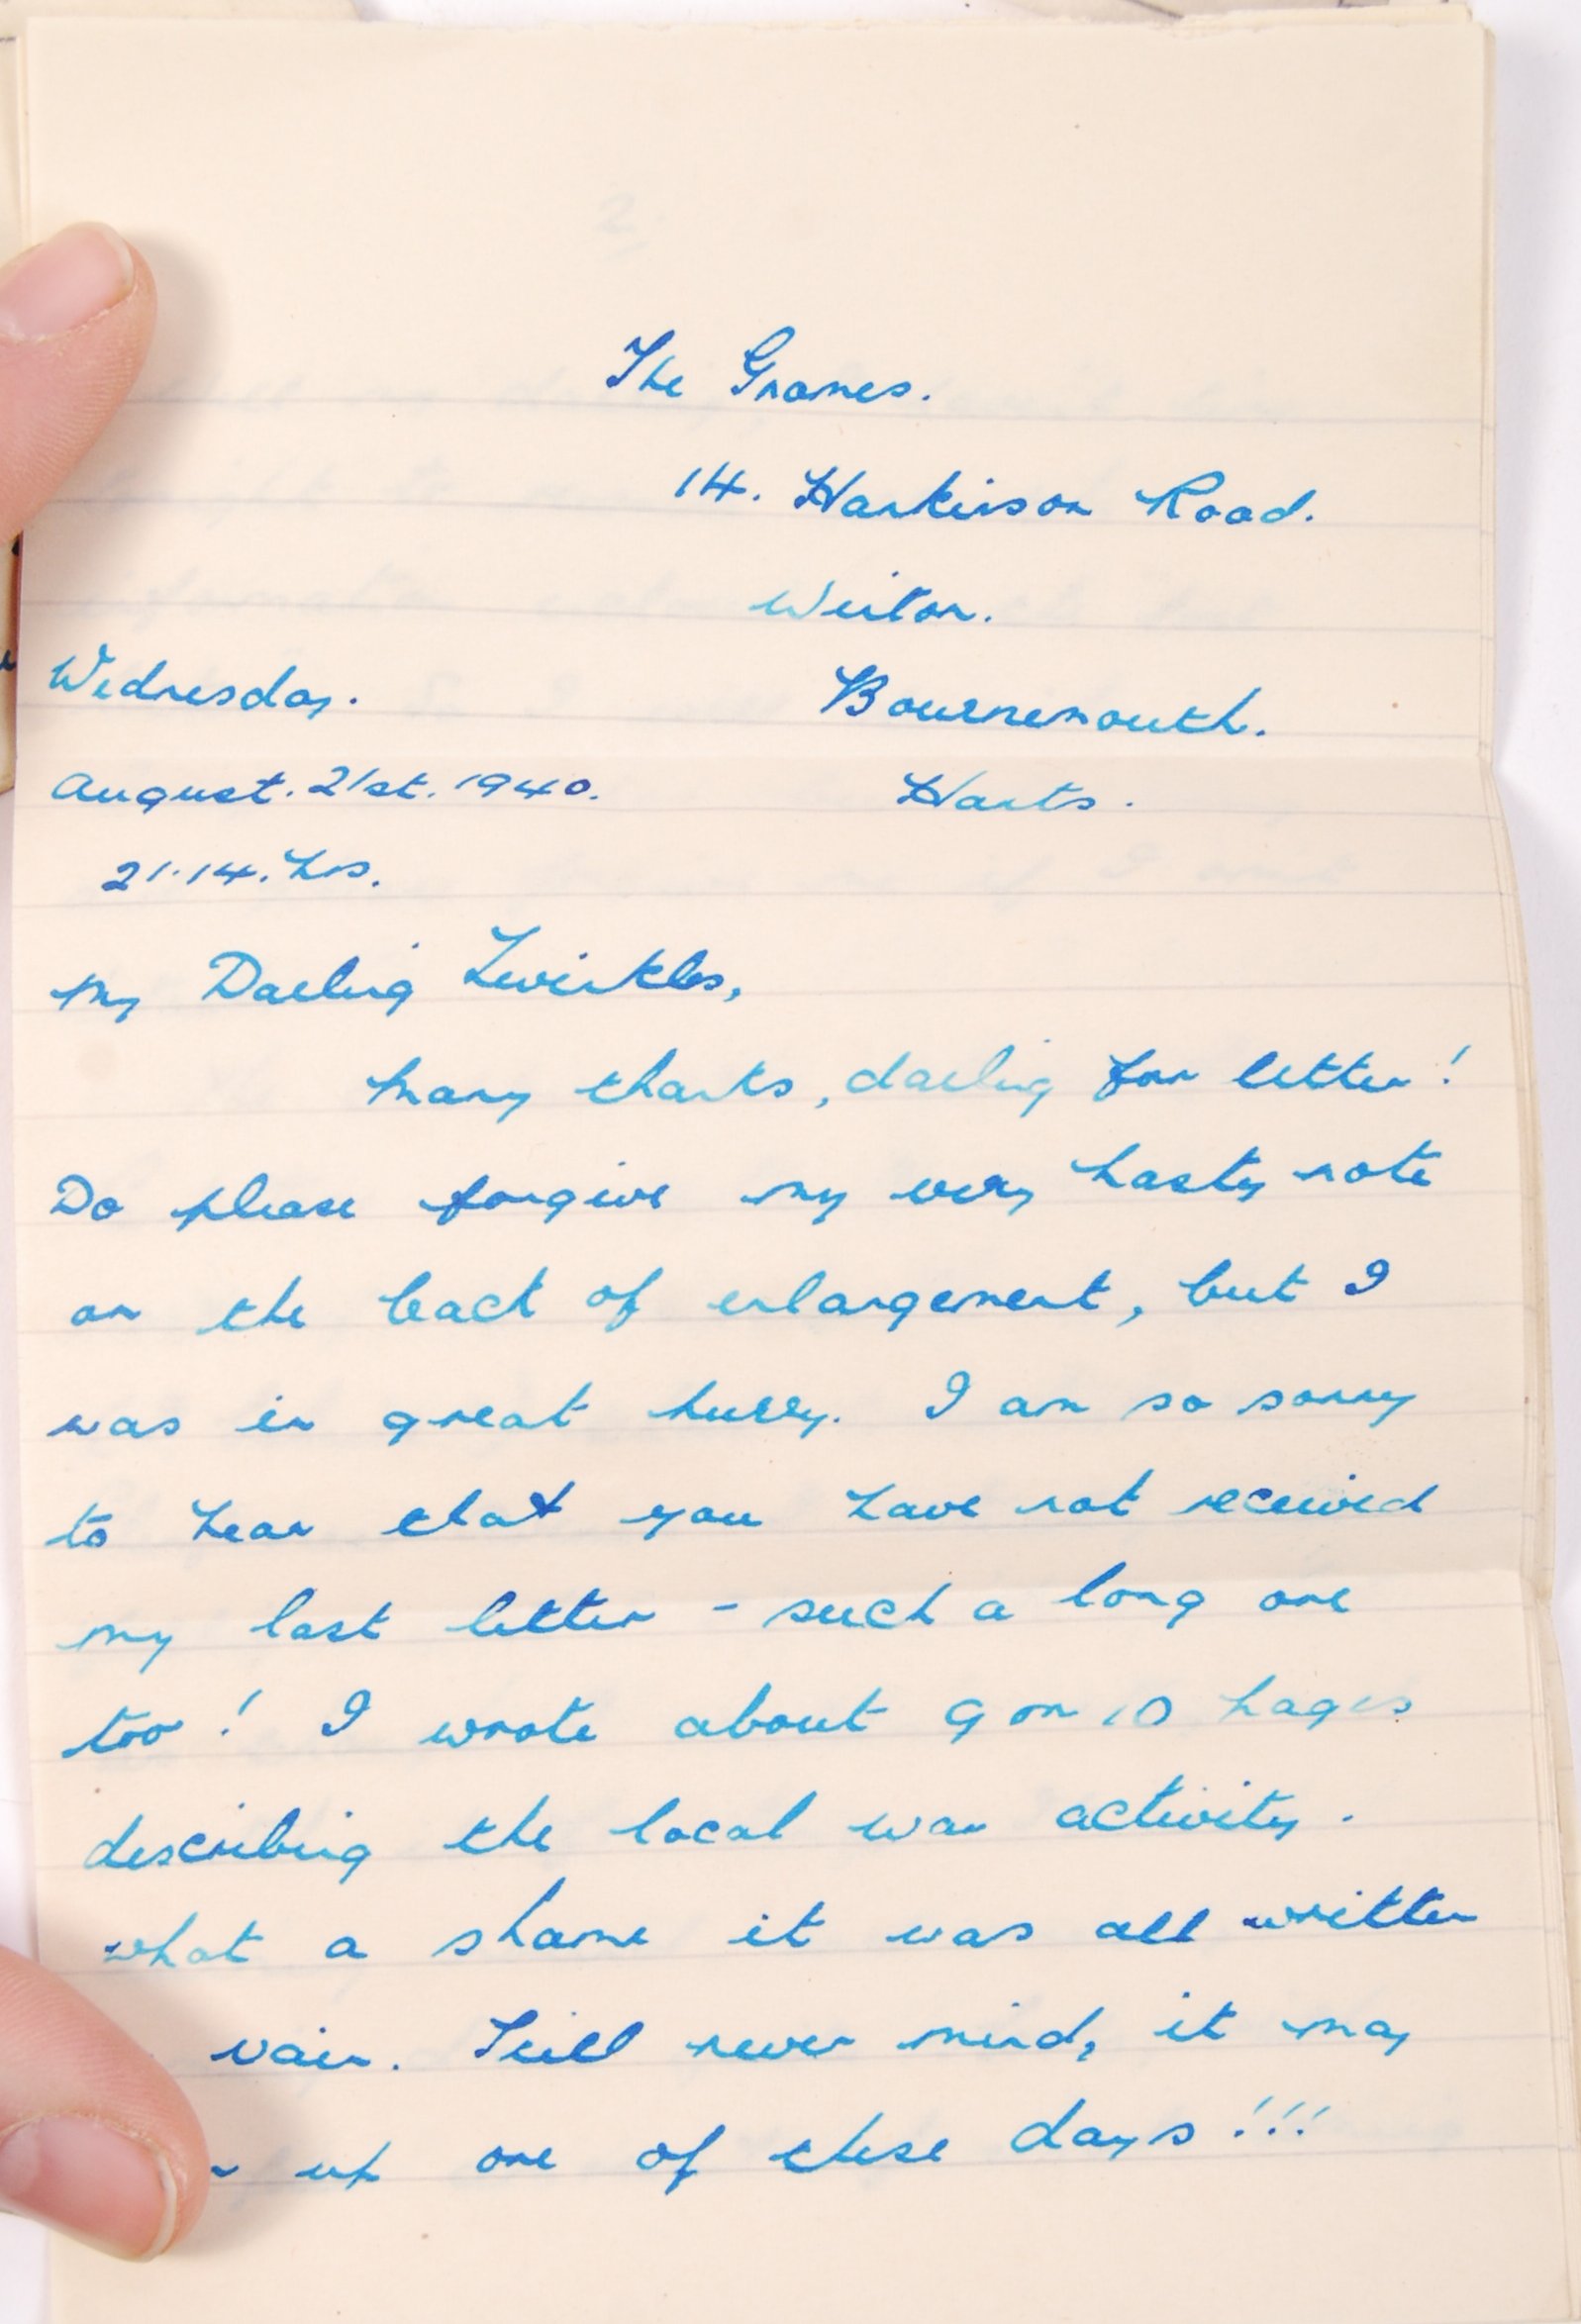 The Gnomes.
14. Harkinson Road.
Winton.
Wednesday.
Bournemouth.
August. 21st. 1940.
Hants.
21.14. hrs.
My Darling Twinkles,
Many thanks, darling for letter!
Do please forgive my very hasty note
on the back of enlargement, but I
was in great hurry. I am so sorry
to hear that you have not received
my last letter - such a long one
too! I wrote about 9 or 10 pages
describing the local war activity.
what a shame it was all written
vain. Still never mind, it may
up one of these days!!!
2.